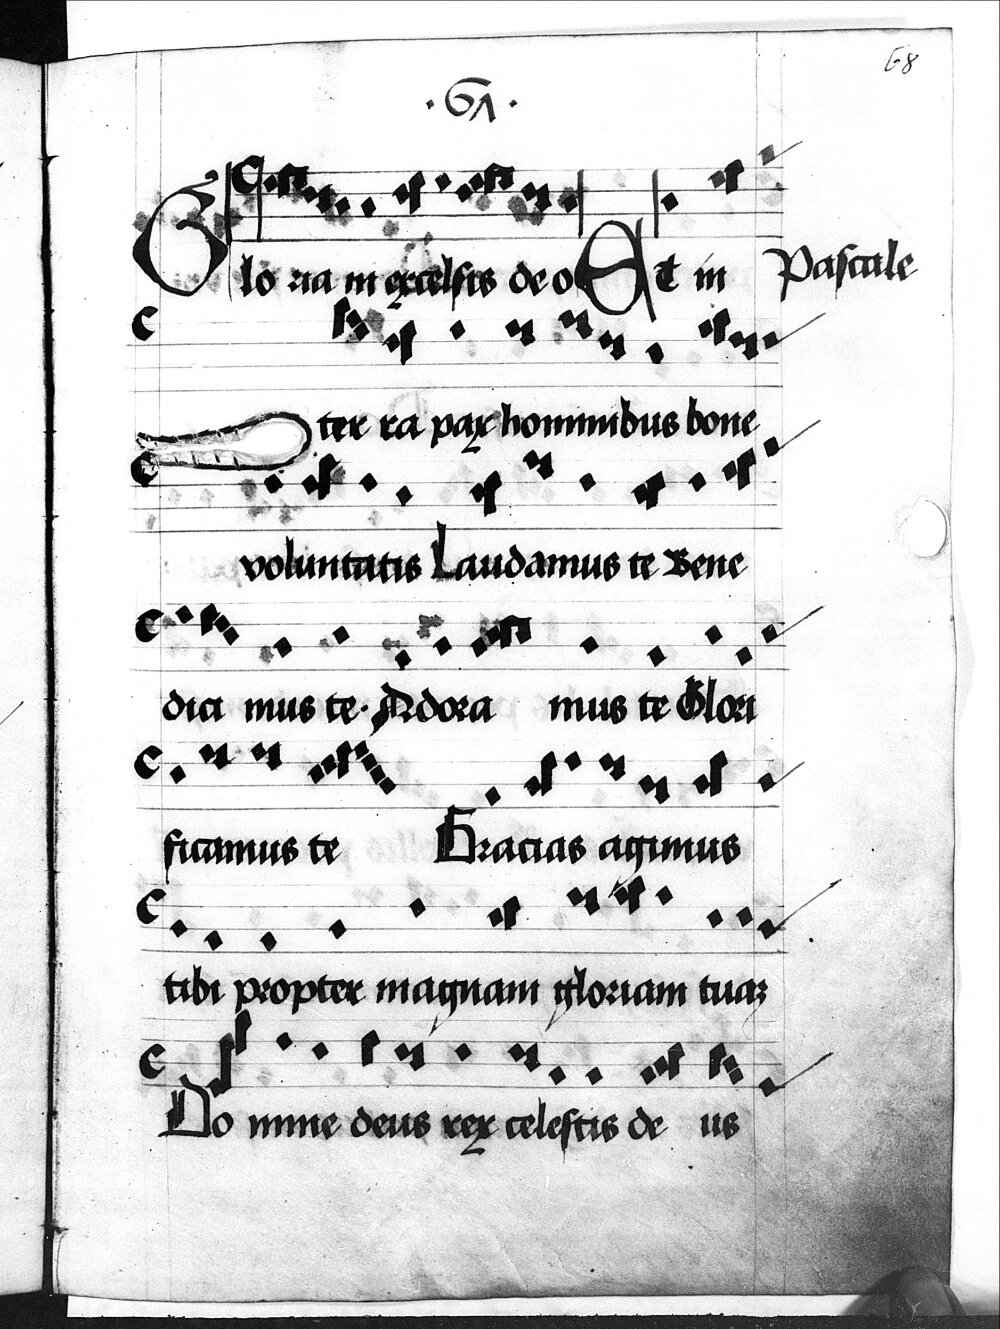 68
· 61 ·
Glo ria in excelsis deo Et in Pascale
ter ra pax hominibus bone
voluntatis Laudamus te Bene
dici mus te · Adora mus te Glori
ficamus te Gracias agimus
tibi propter magnam gloriam tuaꝫ
Do mine deus rex celestis de us